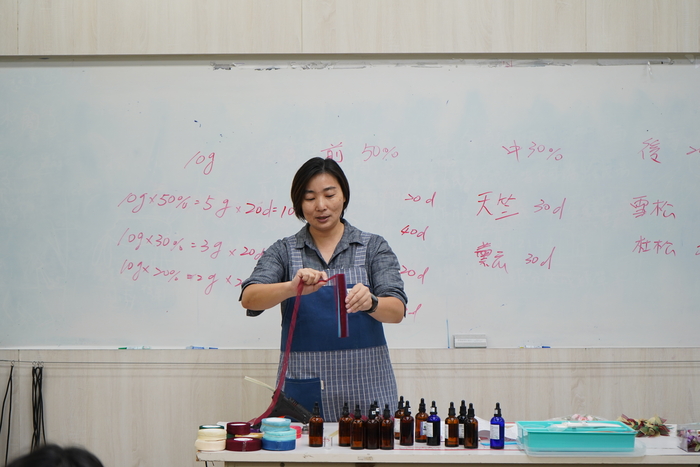 10g
前 50%
中 30%
後
10g×50%=5g×20d=10
20d
天竺 30d
雪松
10g×30%=3g×20d
40d
30d
10g×20%=2g×2
20d